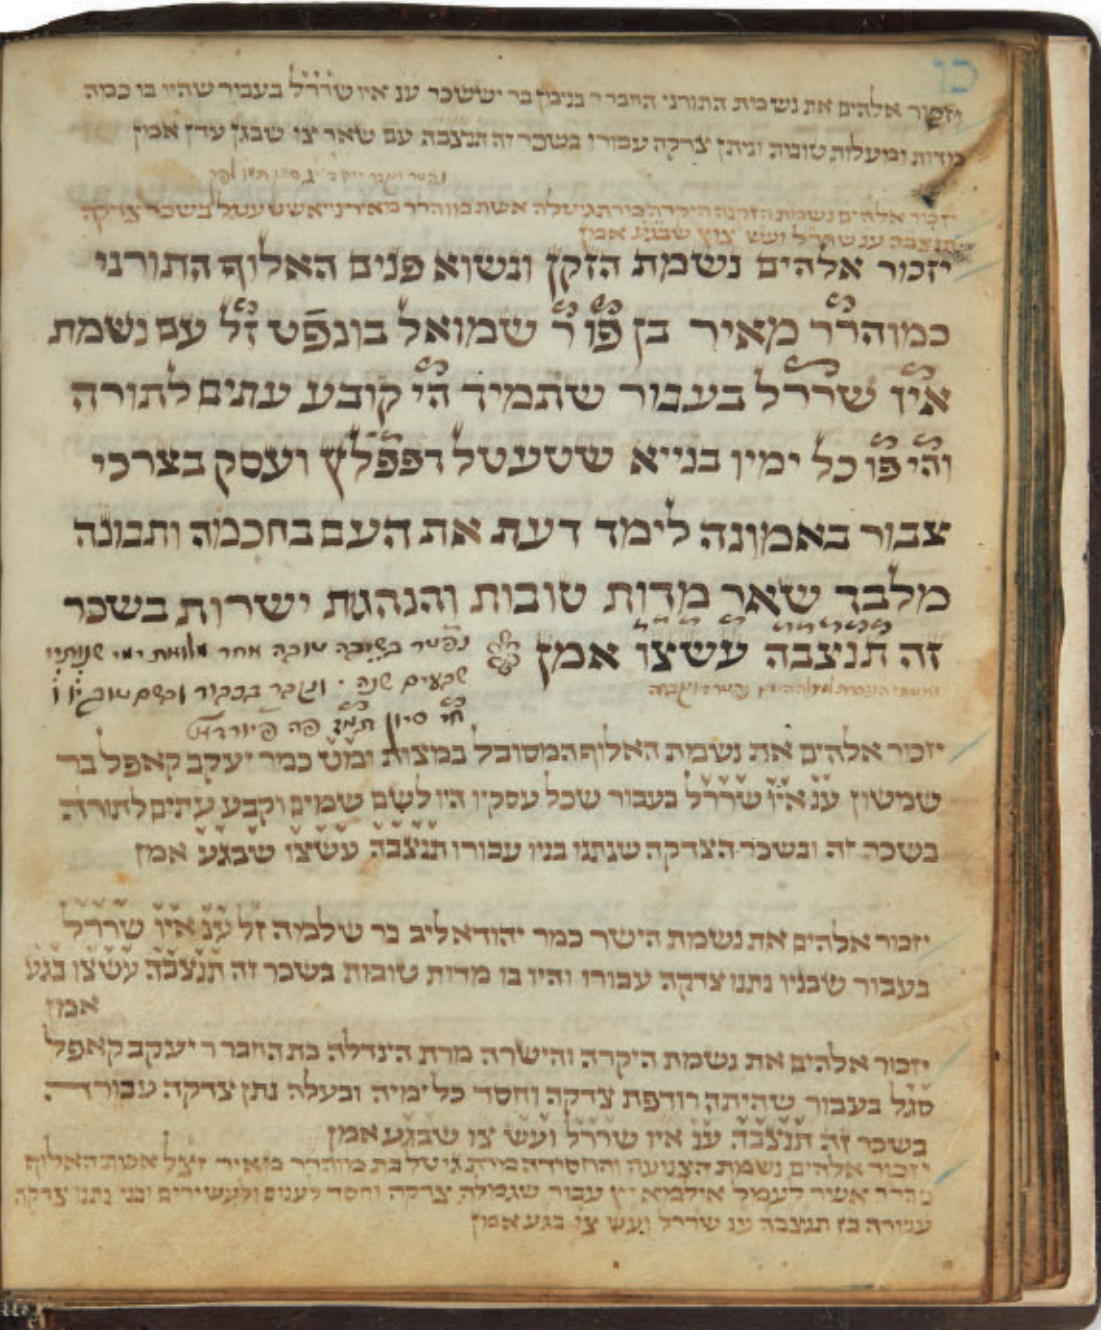 כו
יזכור אלהים את נשמת התורני החבר ר בנימן בר יששכר ענ איו שררל בעבור שהיו בו כמה
מדות ומעלות טובות וניתן צדקה עבורו בשכר זה תנצבה עם שאר צו שבגן עדן אמן
יזכור אלהים נשמת הזקנה היקרה מרת גיטלה אשת כמוהרר מאיר בשכר צדקה
תנצבה ענ שררל ועש צוץ שבגע אמן
יזכור אלהים נשמת הזקן ונשוא פנים האלוף התורני
כמוהרר מאיר בן פו ר שמואל בונפט זל עם נשמת
איו שררל בעבור שתמיד הי קובע עתים לתורה
והי פו כל ימיו בנייא שטעטל דפפלץ ועסק בצרכי
צבור באמונה לימד דעת את העם בחכמה ותבונה
מלבד שאר מדות טובות והנהגת ישרות בשכר
זה תנצבה עשצו אמן
נפטר בשיבה טובה אחר מלואת ימי שנותיו
שבעים שנה ונקבר בכבוד ובשם טוב
חי סיון פה פיורדא
יזכור אלהים את נשמת האלוף המסובל במצות ומט כמר יעקב קאפל בר
שמשון ענ איו שררל בעבור שכל עסקיו היו לשם שמים וקבע עתים לתורה
בשכר זה ובשכר הצדקה שנתנו בניו עבורו תנצבה עשצו שבגע אמן
יזכור אלהים את נשמת הישר כמר יהודא ליב בר שלמיה זל ענ איו שררל
בעבור שבניו נתנו צדקה עבורו והיו בו מדות טובות בשכר זה תנצבה עשצו בגע
אמן
יזכור אלהים את נשמת היקרה והישרה מרת הינדלה בת החבר ר יעקב קאפל
סגל בעבור שהיתה רודפת צדקה וחסד כל ימיה ובעלה נתן צדקה עבורה
בשכר זה תנצבה ענ איו שררל ועש צו שבגע אמן
יזכור אלהים נשמת הצנועה והחסידה מרת גיטל בת מוהרר מאיר זצל אשת האלוף
עבור שגמלה צדקה וחסד לעניים ולעשירים ובני נתנו צדקה
עבורה בז תנצבה ענ שררל ועש צו בגע אמן